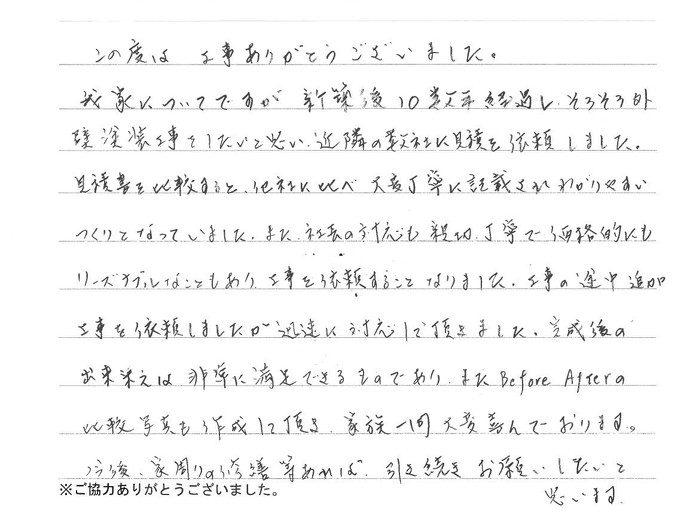 この度は 工事ありがとうございました。
我家についてですが 新築後10数年経過し、そろそろ外
壁塗装工事をしたいと思い、近隣の数社に見積を依頼しました。
見積書を比較すると、他社に比べ大変丁寧に記載されわかりやすい
つくりとなっていました。また、社長の対応も親切、丁寧で価格的にも
リーズナブルなこともあり、工事を依頼することなりました。工事の途中追加
工事を依頼しましたが迅速に対応して頂きました。完成後の
出来栄えは非常に満足できるものであり、またBefore Afterの
比較写真も作成して頂き、家族一同大変喜んでおります。
今後、家周りの修繕等あれば、引き続きお願いしたいと
思います。
※ご協力ありがとうございました。